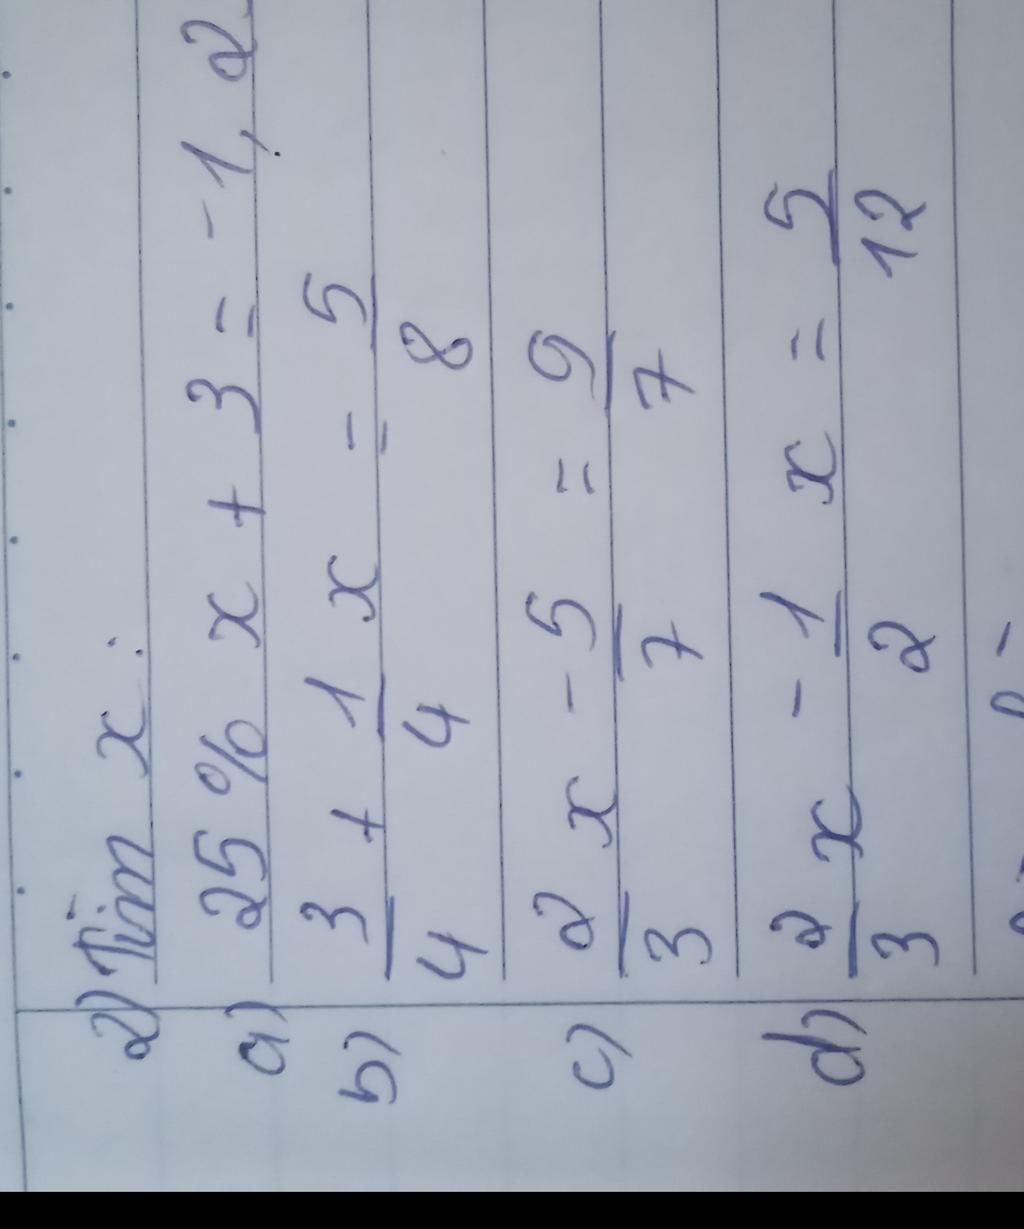 2) Tìm x:
a) 25% x + 3 = -1,2
b) 3/4 + 1/4 x = 5/8
c) 2/3 x - 5/7 = 9/7
d) 2/3 x - 1/2 x = 5/12